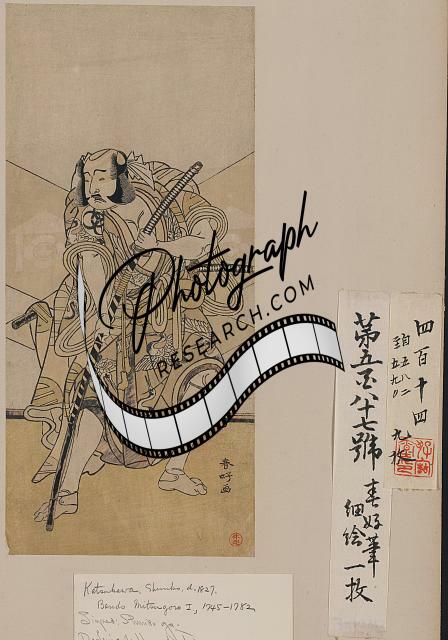 Photograph
RESEARCH.COM
春好画
四百十四
自五八二
至五九〇
九枚
第五百八十七號
春好筆
細絵一枚
Katsukawa, Shunko, d. 1827.
Bando Mitsugoro I, 1745-1782
Signed: Shunko ga.